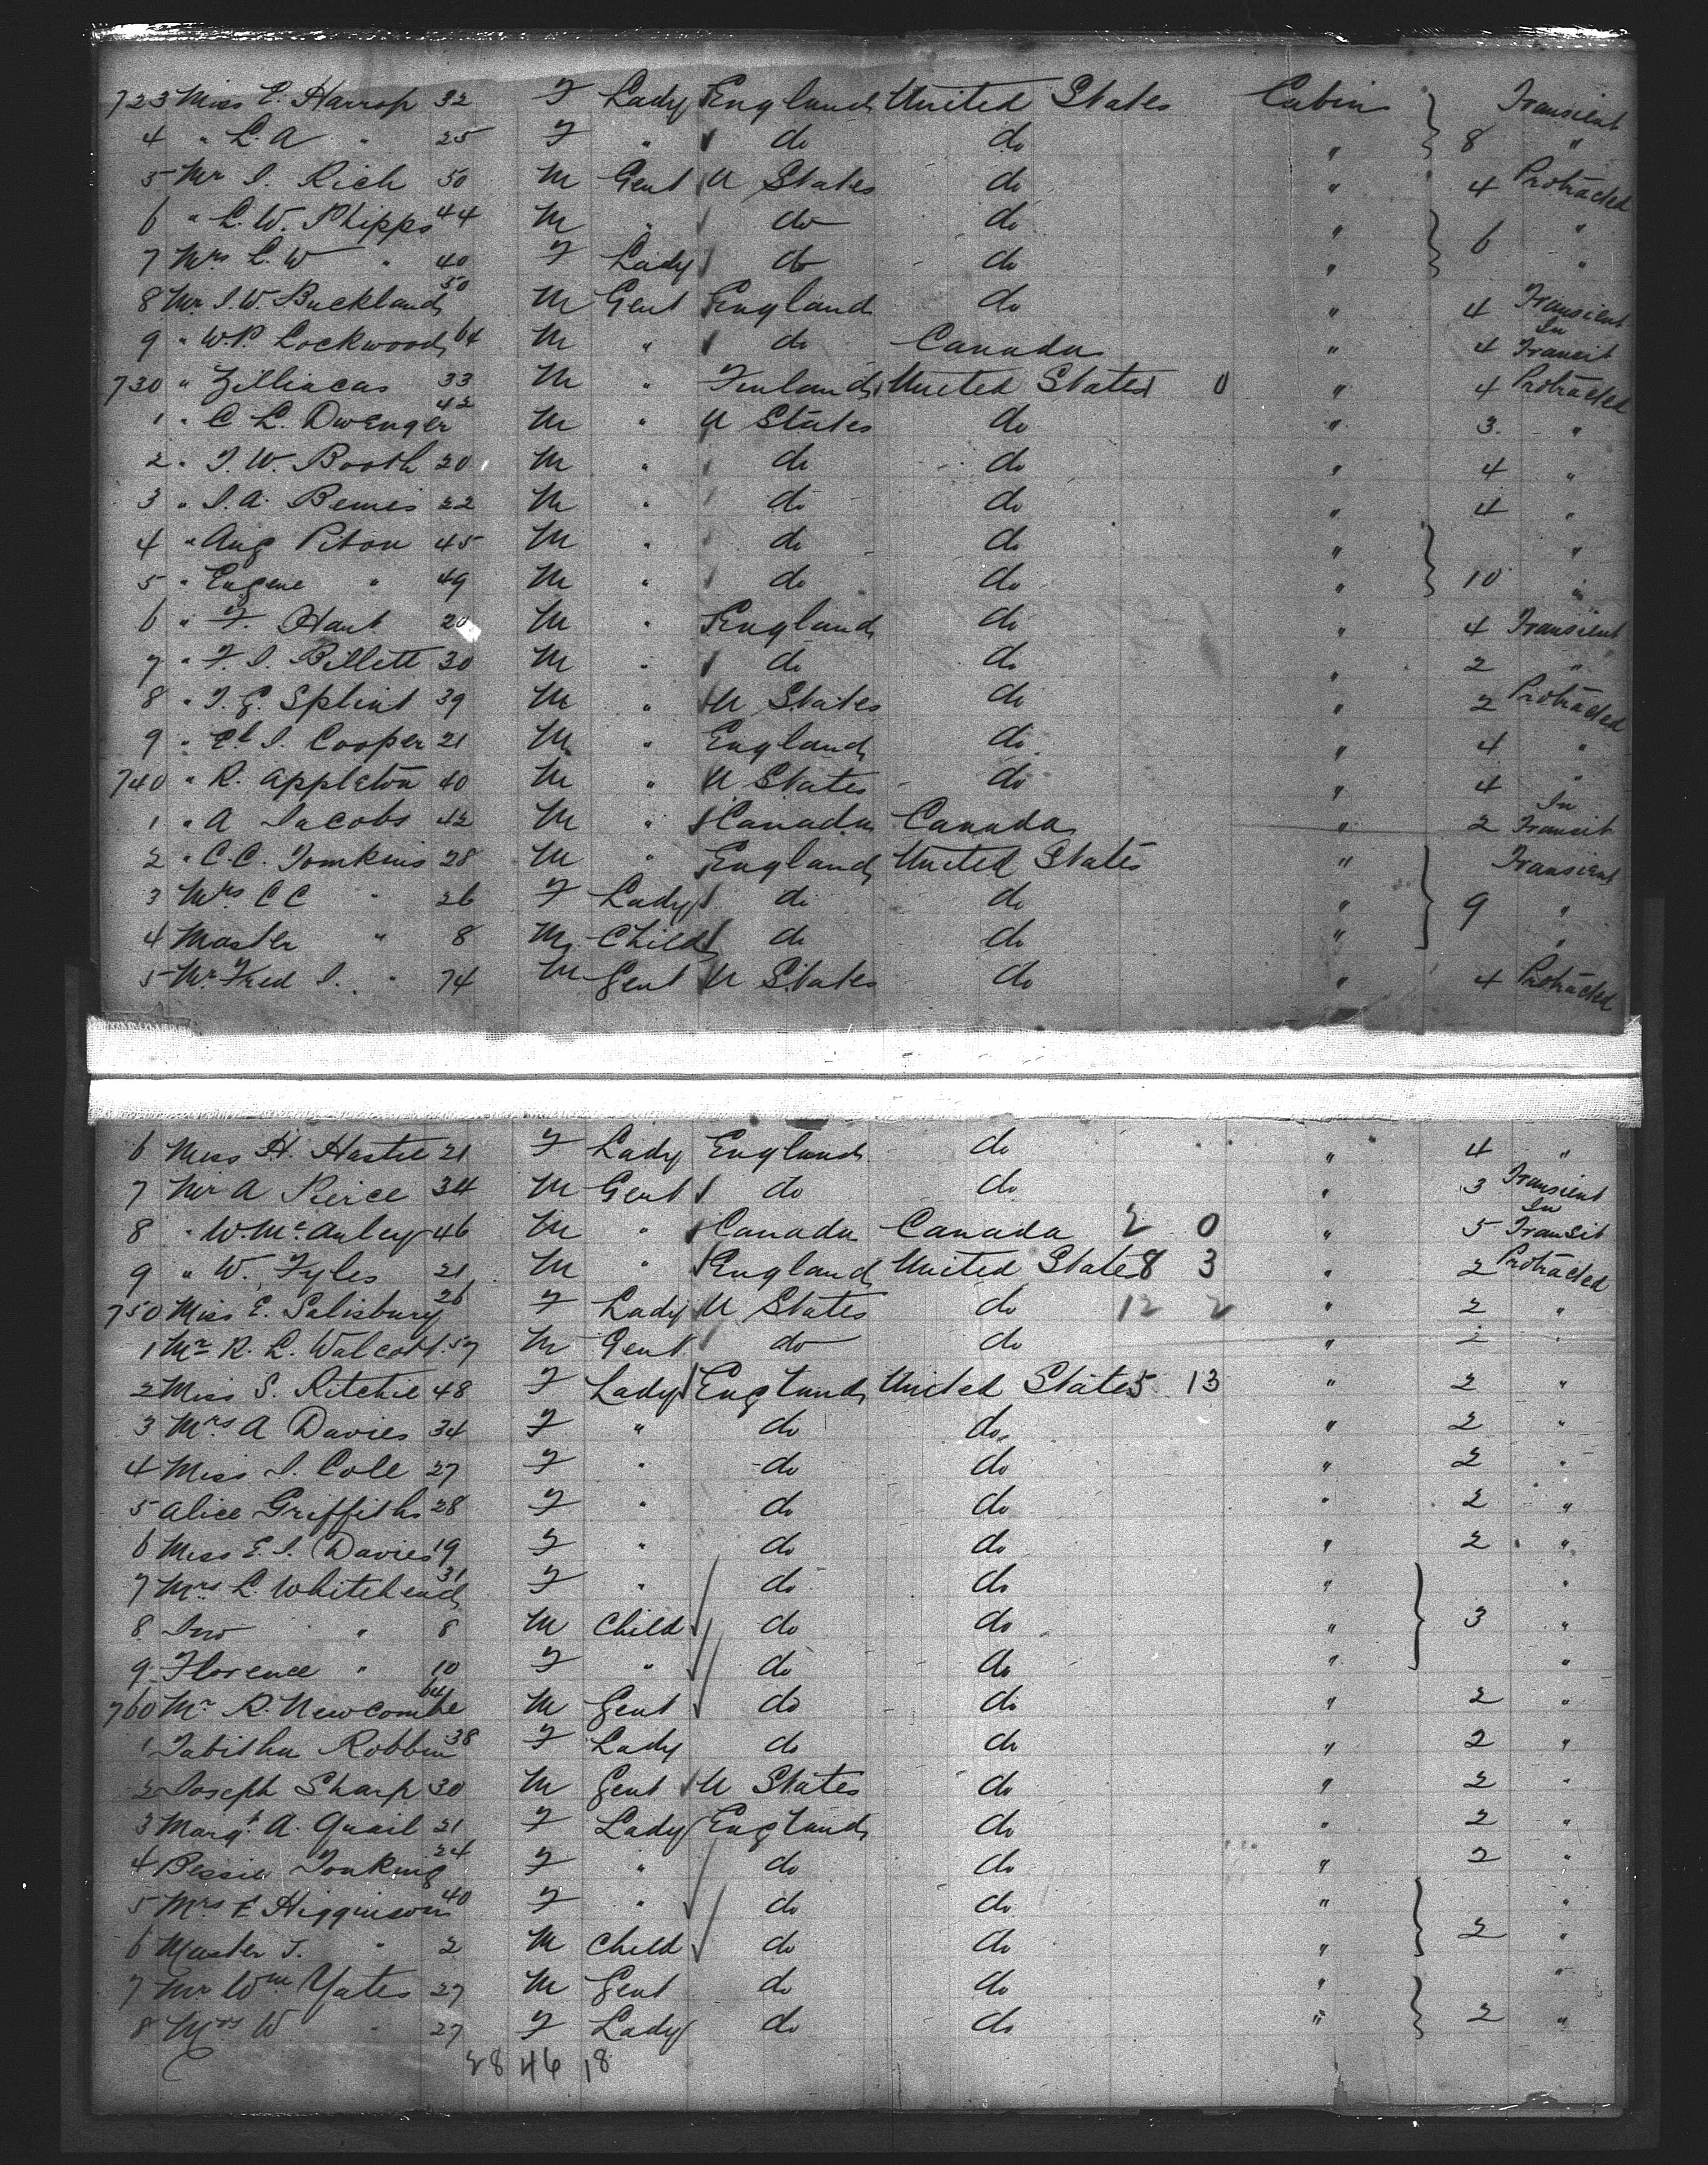 723 Miss E. Harrop 32 F Lady England United States Cabin Transient
4 " L. A " 25 F " do do " 8 "
5 Mr I. Rich 50 M Gent U States do " 4 Protracted
6 " L. W. Phipps 44 M " do do " "
7 Mrs L. W " 40 F Lady do do " 6 "
8 Mr. I. W. Buckland 50 M Gent England do " 4 Transient
9 " W. P. Lockwood 64 M " do Canada " 4 In Transit
730 " Zilliacas 33 M " Finland United States 0 " 4 Protracted
1 " C L. Dwenger 42 M " U States do " 3 "
2 " I. W. Booth 20 M " do do " 4 "
3 " I. A. Bemis 22 M " do do " 4 "
4 " Aug Piton 45 M " do do " "
5 " Eugene " 49 M " do do " 10 "
6 " F. Hart 20 M " England do " 4 Transient
7 " F. I. Billett 30 M " do do " 2 "
8 " I. G. Splint 39 M " U States do " 2 Protracted
9 " I. Cooper 21 M " England do " 4 "
740 " R. Appleton 40 M " U States do " 4 "
1 " A Jacobs 42 M " Canada Canada " 2 In Transit
2 " C. C. Tomkins 28 M " England United States " Transient
3 Mrs C C " 26 F Lady do do " 9 "
4 Master " 8 M Child do do " "
5 Mr. Fred I. " 74 M Gent U States do " 4 Protracted
6 Miss H. Hastie 21 F Lady England do " 4 "
7 Mr A Pierce 34 M Gent do do " 3 Transient
8 " W. McAuley 46 M " Canada Canada 2 0 " 5 In Transit
9 " W. Fyles 21 M " England United States 8 3 " 2 Protracted
750 Miss E. Salisbury 26 F Lady U States do 12 2 " 2 "
1 Mr R. L. Walcott 57 M Gent do do 2 "
2 Miss S. Ritchie 48 F Lady England United States 5 13 " 2 "
3 Mrs A Davies 34 F " do do " 2 "
4 Miss I. Cole 27 F " do do " 2 "
5 Alice Griffiths 28 F " do do " 2 "
6 Miss E. I. Davies 19 F " do do " 2 "
7 Mrs L. Whitehead 31 F " do do " "
8 Jno " 8 M Child do do " 3 "
9 Florence " 10 F " do do " "
760 Mr R. Newcombe 64 M Gent do do " 2 "
1 Tabitha Robbin 38 F Lady do do " 2 "
2 Joseph Sharp 30 M Gent U States do " 2 "
3 Margt. A. Quail 21 F Lady England do " 2 "
4 Bessie Tonking 24 F " do do " 2 "
5 Mrs E Higginson 40 F " do do " "
6 Master J. " 2 M Child do do " 2 "
7 Mr Wm Yates 27 M Gent do do " "
8 Mrs W " 27 F Lady do do " 2 "
28 46 18